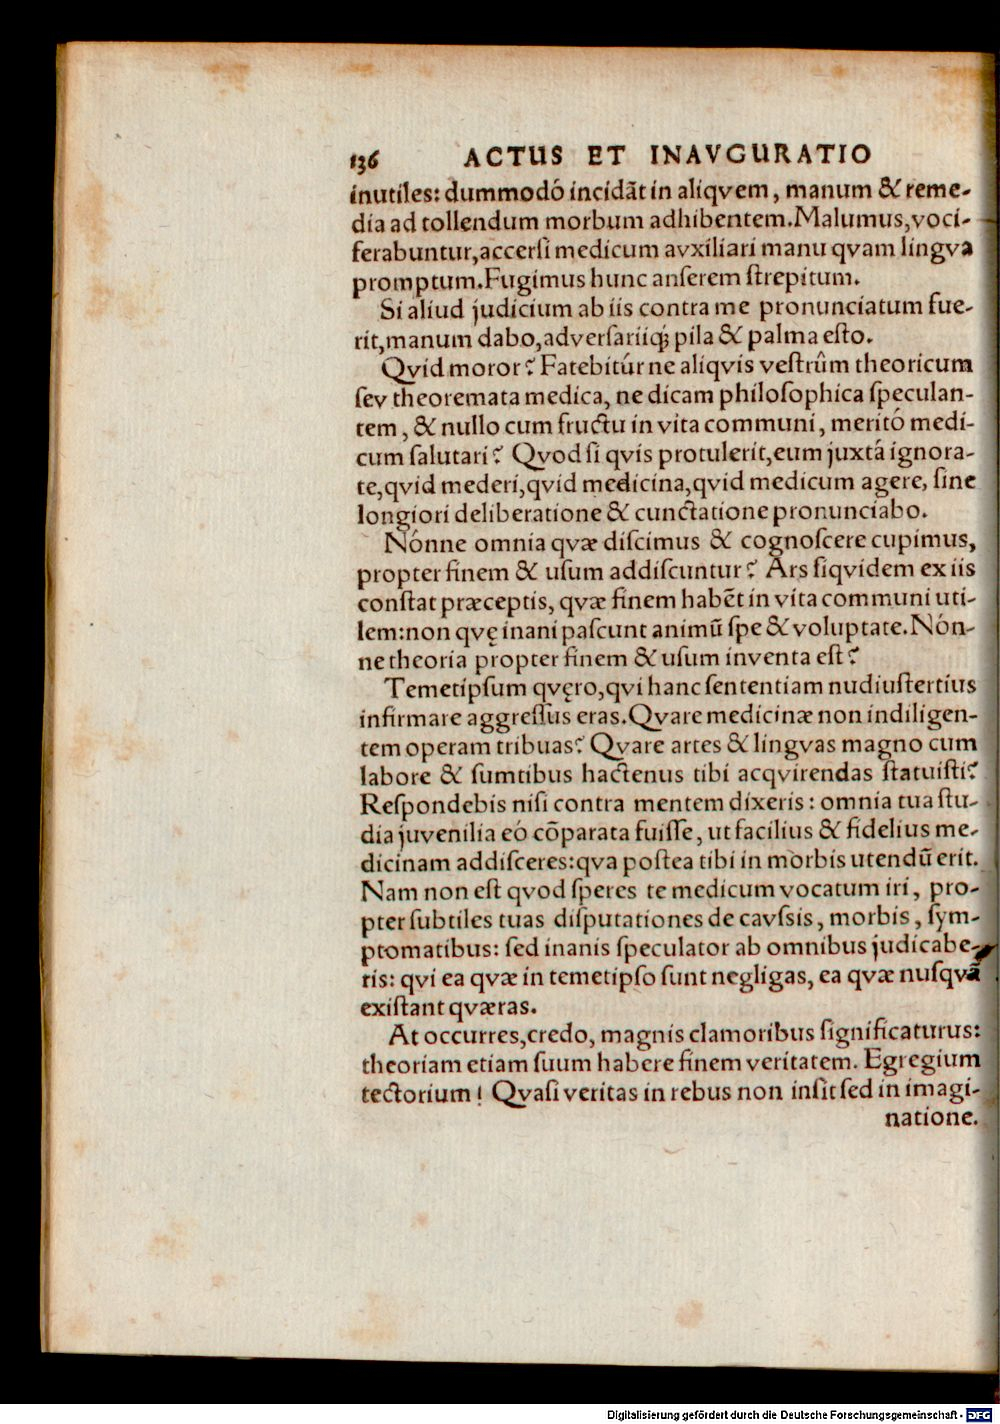 136 ACTUS ET INAVGURATIO
inutiles: dummodó incidāt in aliqvem, manum & reme-
dia ad tollendum morbum adhibentem. Malumus, voci-
ferabuntur, accerſi medicum avxiliari manu qvam lingva
promptum. Fugimus hunc anſerem ſtrepitum.
Si aliud judicium ab iis contra me pronunciatum fue-
rit, manum dabo, adverſariiq; pila & palma eſto.
Qvid moror? Fatebitúr ne aliqvis veſtrûm theoricum
ſev theoremata medica, ne dicam philoſophica ſpeculan-
tem, & nullo cum fructu in vita communi, meritó medi-
cum ſalutari? Qvod ſi qvis protulerit, eum juxtá ignora-
te, qvid mederi, qvid medicina, qvid medicum agere, ſine
longiori deliberatione & cunctatione pronunciabo.
Nónne omnia qvæ diſcimus & cognoſcere cupimus,
propter finem & uſum addiſcuntur? Ars ſiqvidem ex iis
conſtat præceptis, qvæ finem habēt in vita communi uti-
lem: non qvę inani paſcunt animū ſpe & voluptate. Nón-
ne theoria propter finem & uſum inventa eſt?
Temetipſum qvęro, qvi hanc ſententiam nudiuſtertius
infirmare aggreſſus eras. Qvare medicinæ non indiligen-
tem operam tribuas? Qvare artes & lingvas magno cum
labore & ſumtibus hactenus tibi acqvirendas ſtatuiſti?
Reſpondebis niſi contra mentem dixeris: omnia tua ſtu-
dia juvenilia eó cōparata fuiſſe, ut facilius & fidelius me-
dicinam addiſceres: qva poſtea tibi in morbis utendū erit.
Nam non eſt qvod ſperes te medicum vocatum iri, pro-
pter ſubtiles tuas diſputationes de cavſsis, morbis, ſym-
ptomatibus: ſed inanis ſpeculator ab omnibus judicabe-
ris: qvi ea qvæ in temetipſo ſunt negligas, ea qvæ nuſqvā
exiſtant qværas.
At occurres, credo, magnis clamoribus ſignificaturus:
theoriam etiam ſuum habere finem veritatem. Egregium
tectorium! Qvaſi veritas in rebus non inſit ſed in imagi-
natione.
Digitalisierung gefördert durch die Deutsche Forschungsgemeinschaft - DFG